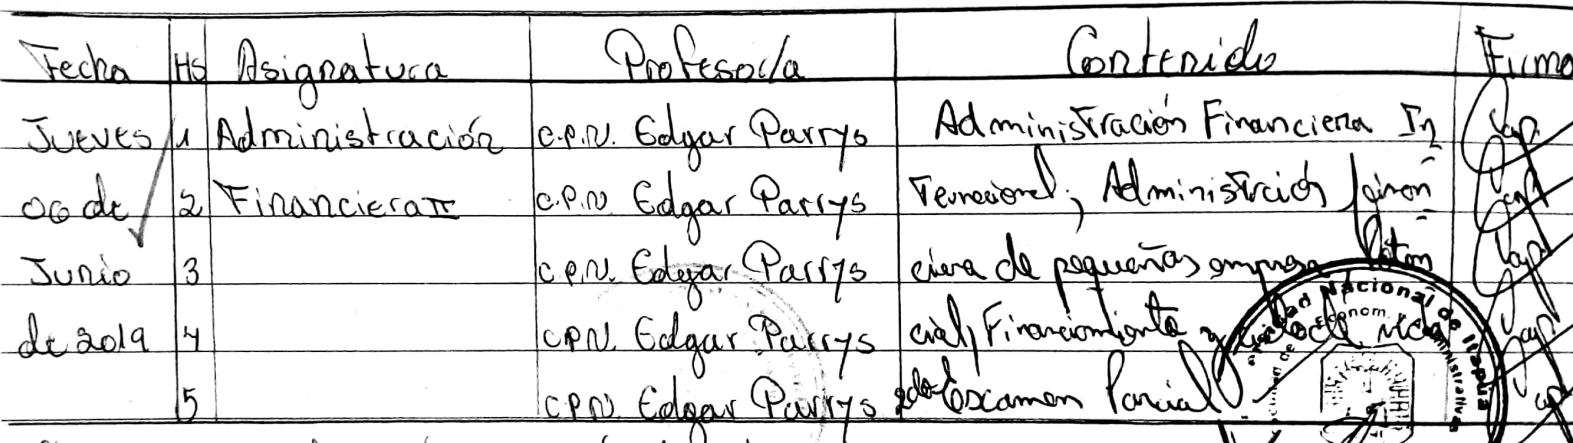 Fecha Hs Asignatura Profesor/a Contenido Firma
Jueves 1 Administración C.P.N. Edgar Parrys Administración Financiera In
06 de 2 Financiera II C.P.N. Edgar Parrys ternacional, Administración finan
Junio 3 C.P.N. Edgar Parrys ciera de pequeñas empresa
de 2019 4 C.P.N. Edgar Parrys cial, Financiamiento
5 C.P.N. Edgar Parrys 2do Examen Parcial
Nacional de Itapúa